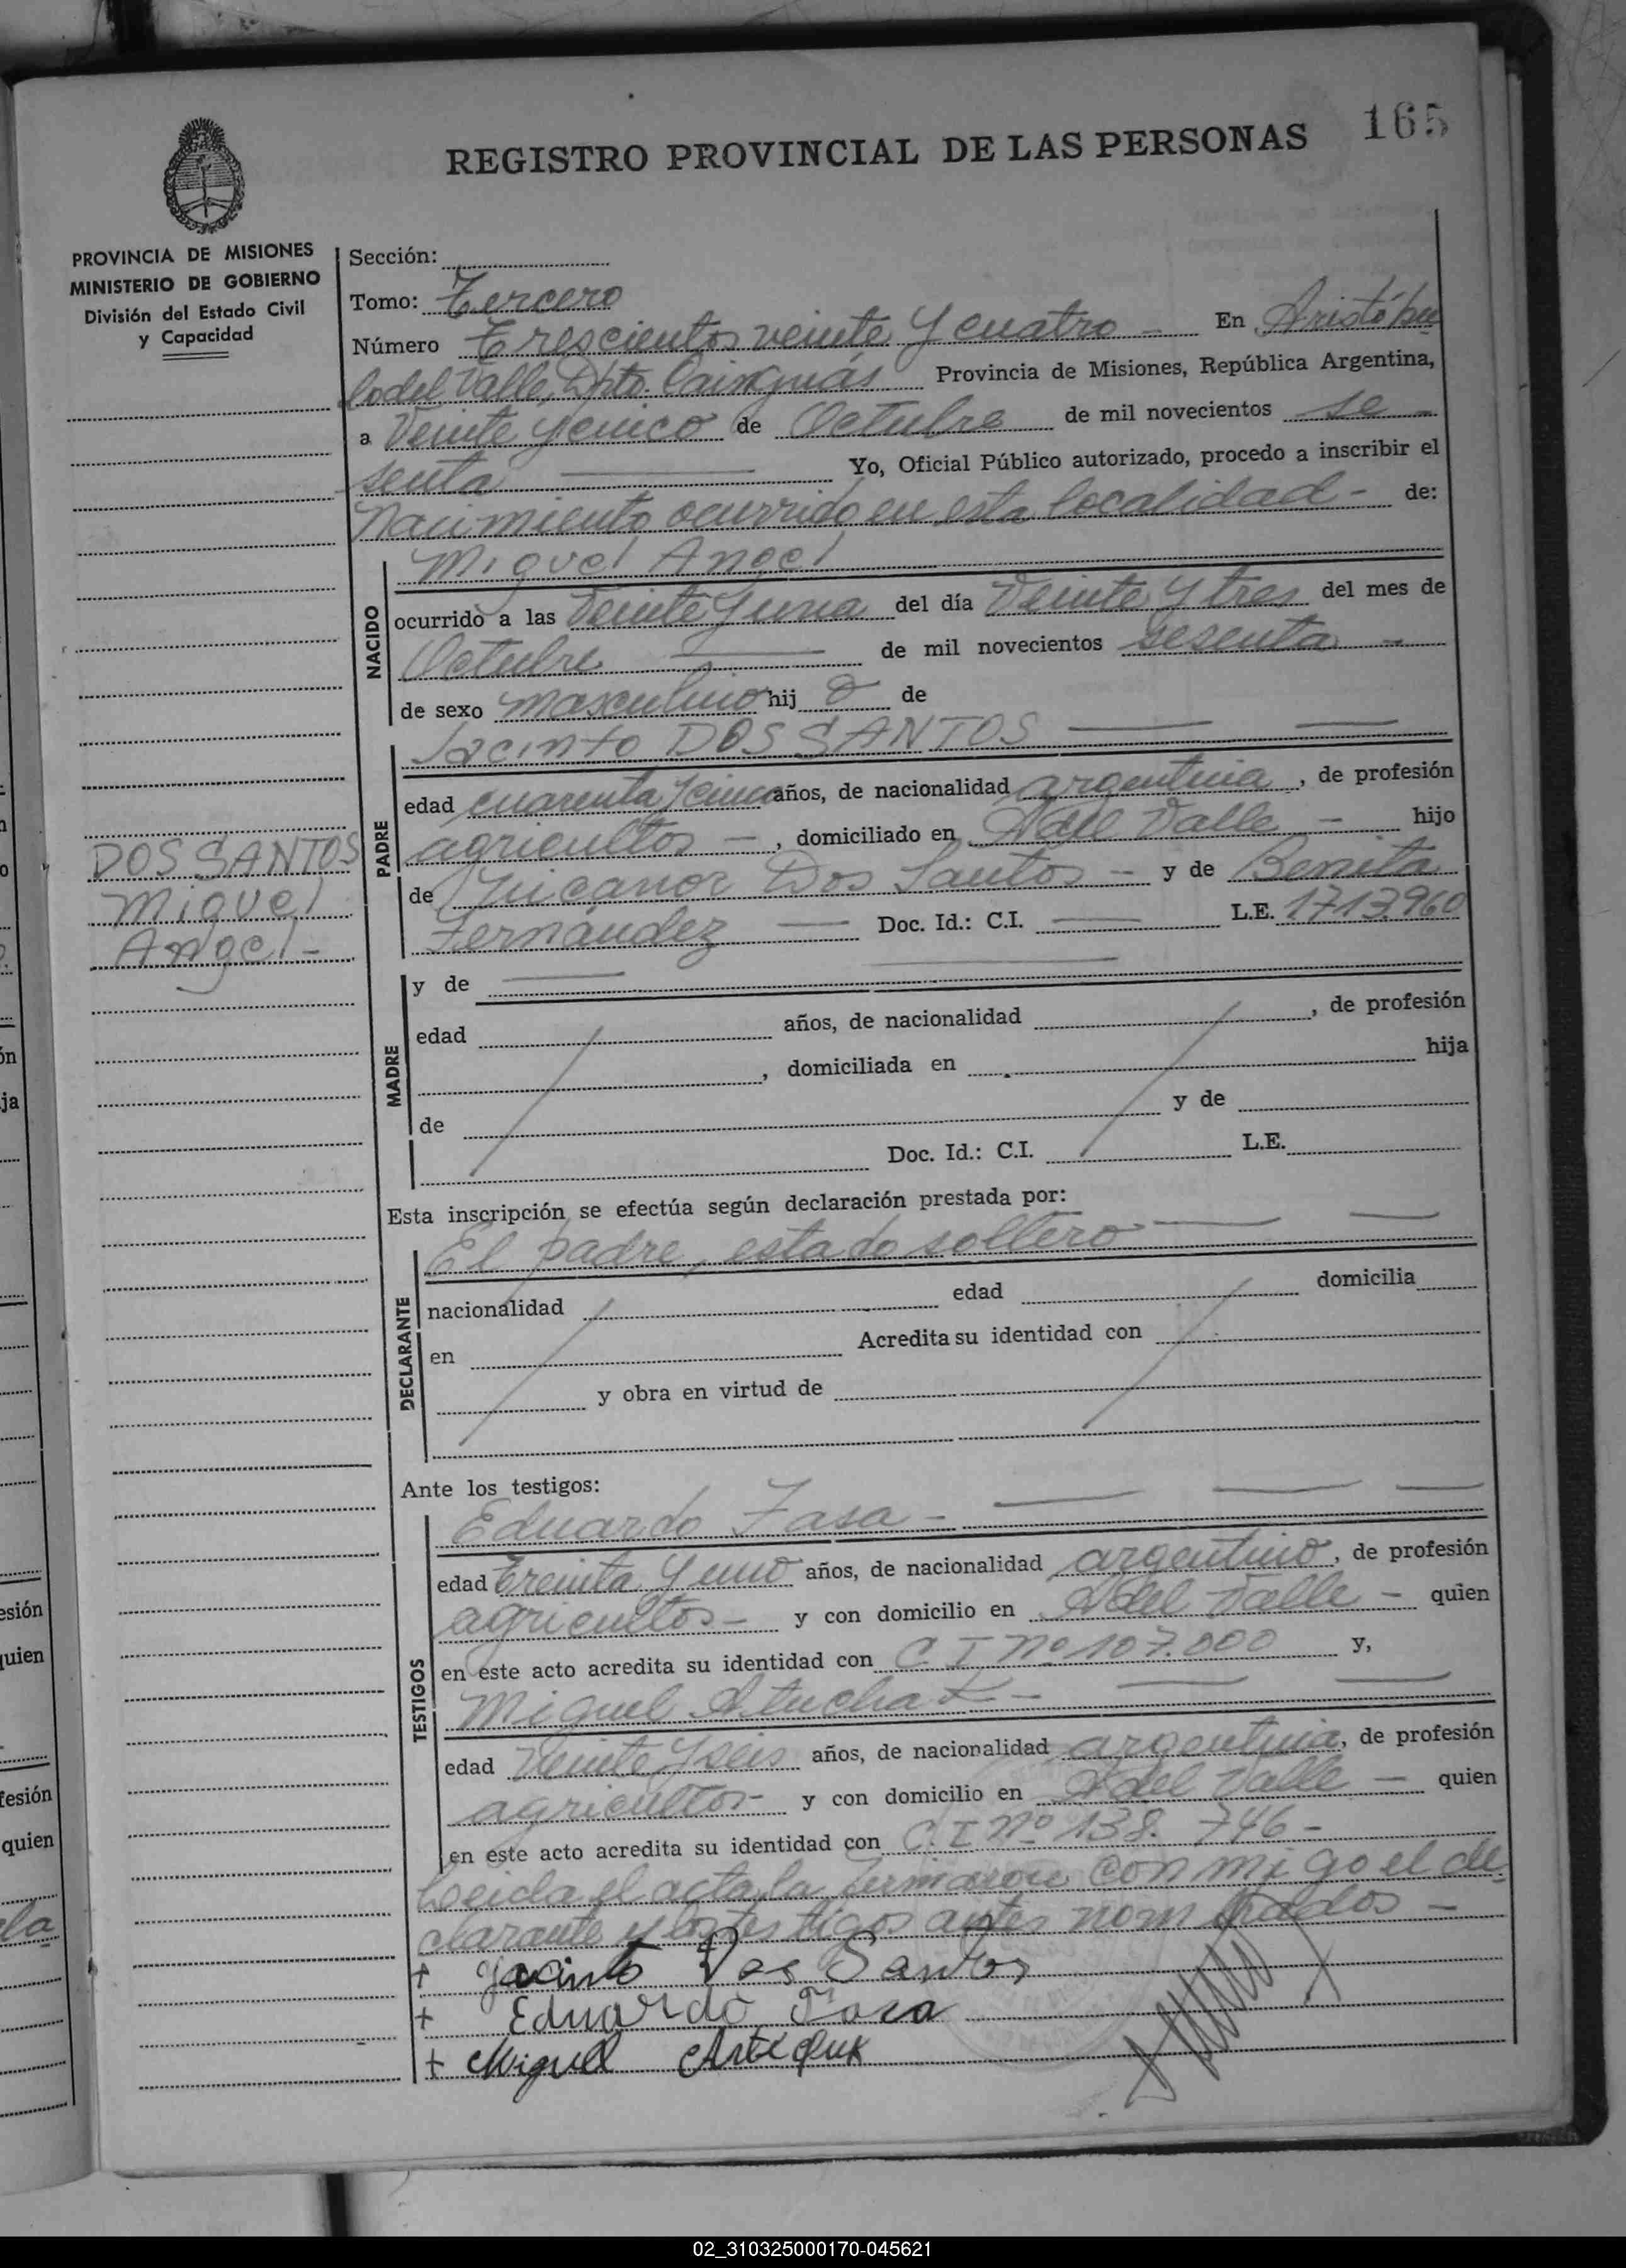 165
REGISTRO PROVINCIAL DE LAS PERSONAS
PROVINCIA DE MISIONES
MINISTERIO DE GOBIERNO
División del Estado Civil
y Capacidad
Sección:
Tomo: Tercero
Número Trescientos veinte y cuatro - En Aristóbu
lo del Valle, Dpto. Cainguás Provincia de Misiones, República Argentina,
a Veinte y cinco de Octubre de mil novecientos se -
senta Yo, Oficial Público autorizado, procedo a inscribir el
Nacimiento ocurrido en esta localidad - de:
Miguel Angel
NACIDO
ocurrido a las Veinte y una del día Veinte y tres del mes de
Octubre de mil novecientos sesenta -
de sexo masculino hij o de
Jacinto DOS SANTOS
PADRE
edad cuarenta y cinco años, de nacionalidad argentina, de profesión
agricultor -, domiciliado en A del Valle - hijo
de Nicanor Dos Santos - y de Benita
Fernández Doc. Id.: C.I. L.E. 1713.960
DOS SANTOS
Miguel
Angel -
MADRE
y de
edad años, de nacionalidad , de profesión
, domiciliada en hija
de y de
Doc. Id.: C.I. L.E.
Esta inscripción se efectúa según declaración prestada por:
El padre, estado soltero
DECLARANTE
nacionalidad edad domicilia
en Acredita su identidad con
y obra en virtud de
Ante los testigos:
Eduardo Zasa -
TESTIGOS
edad treinta y uno años, de nacionalidad argentino, de profesión
agricultor - y con domicilio en A del Valle - quien
en este acto acredita su identidad con C. I Nº 107.000 y,
Miguel
edad Veinte y seis años, de nacionalidad argentina, de profesión
agricultor - y con domicilio en A del Valle - quien
en este acto acredita su identidad con C. I Nº 138.746 -
Leida el acta, la firmaron conmigo el de
clarante y los testigos antes nombrados -
+ Jacinto Dos Santos
+ Eduardo
+ Miguel
02_310325000170-045621